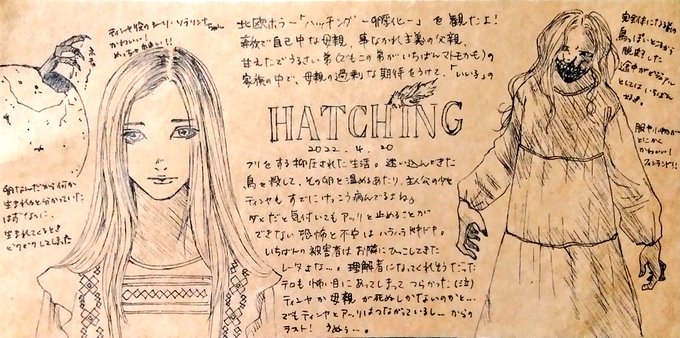 ティンヤ役のシーリ・ソラリンナちゃん
かわいい！
めっちゃかわいい!!
北欧ホラー「ハッチングー孵化ー」を観たよ！
豪族で自己中な母親、事なかれ主義の父親、
甘えたでうるさい弟(でもこの弟がいちばんマトモかも)の
家族の中で、母親の過剰な期待をうけて、「いい子」の
HATCHING
2022.4.20
フリをする抑圧された生活。迷い込んできた
鳥を殺して、その卵を温めるあたり、主人公の少女
ティンヤもすでにけっこう病んでるよね。
ダメだと気付いてもアッリを止めることが
できない恐怖と不安はハラハラドキドキ。
いちばんの被害者はお隣にひっこしてきた
レータよな…。理解者になってくれそうだった
テロも怖い目にあってしまってつらかった(泣)
ティンヤか母親が死ぬしかないのかと…
でもティンヤとアッリはつながっているし…からの
ラスト！うぬぅ…。
卵なんだから何か
生まれると分かっていた
はずなのに、
生まれてくるとき
ドクドクしてしまった
鳥っぽいところから
脱却した
途中がビジュアル
としてはいちばん
好き。
服や小物が
とにかく
かわいい！
フィンランド!!